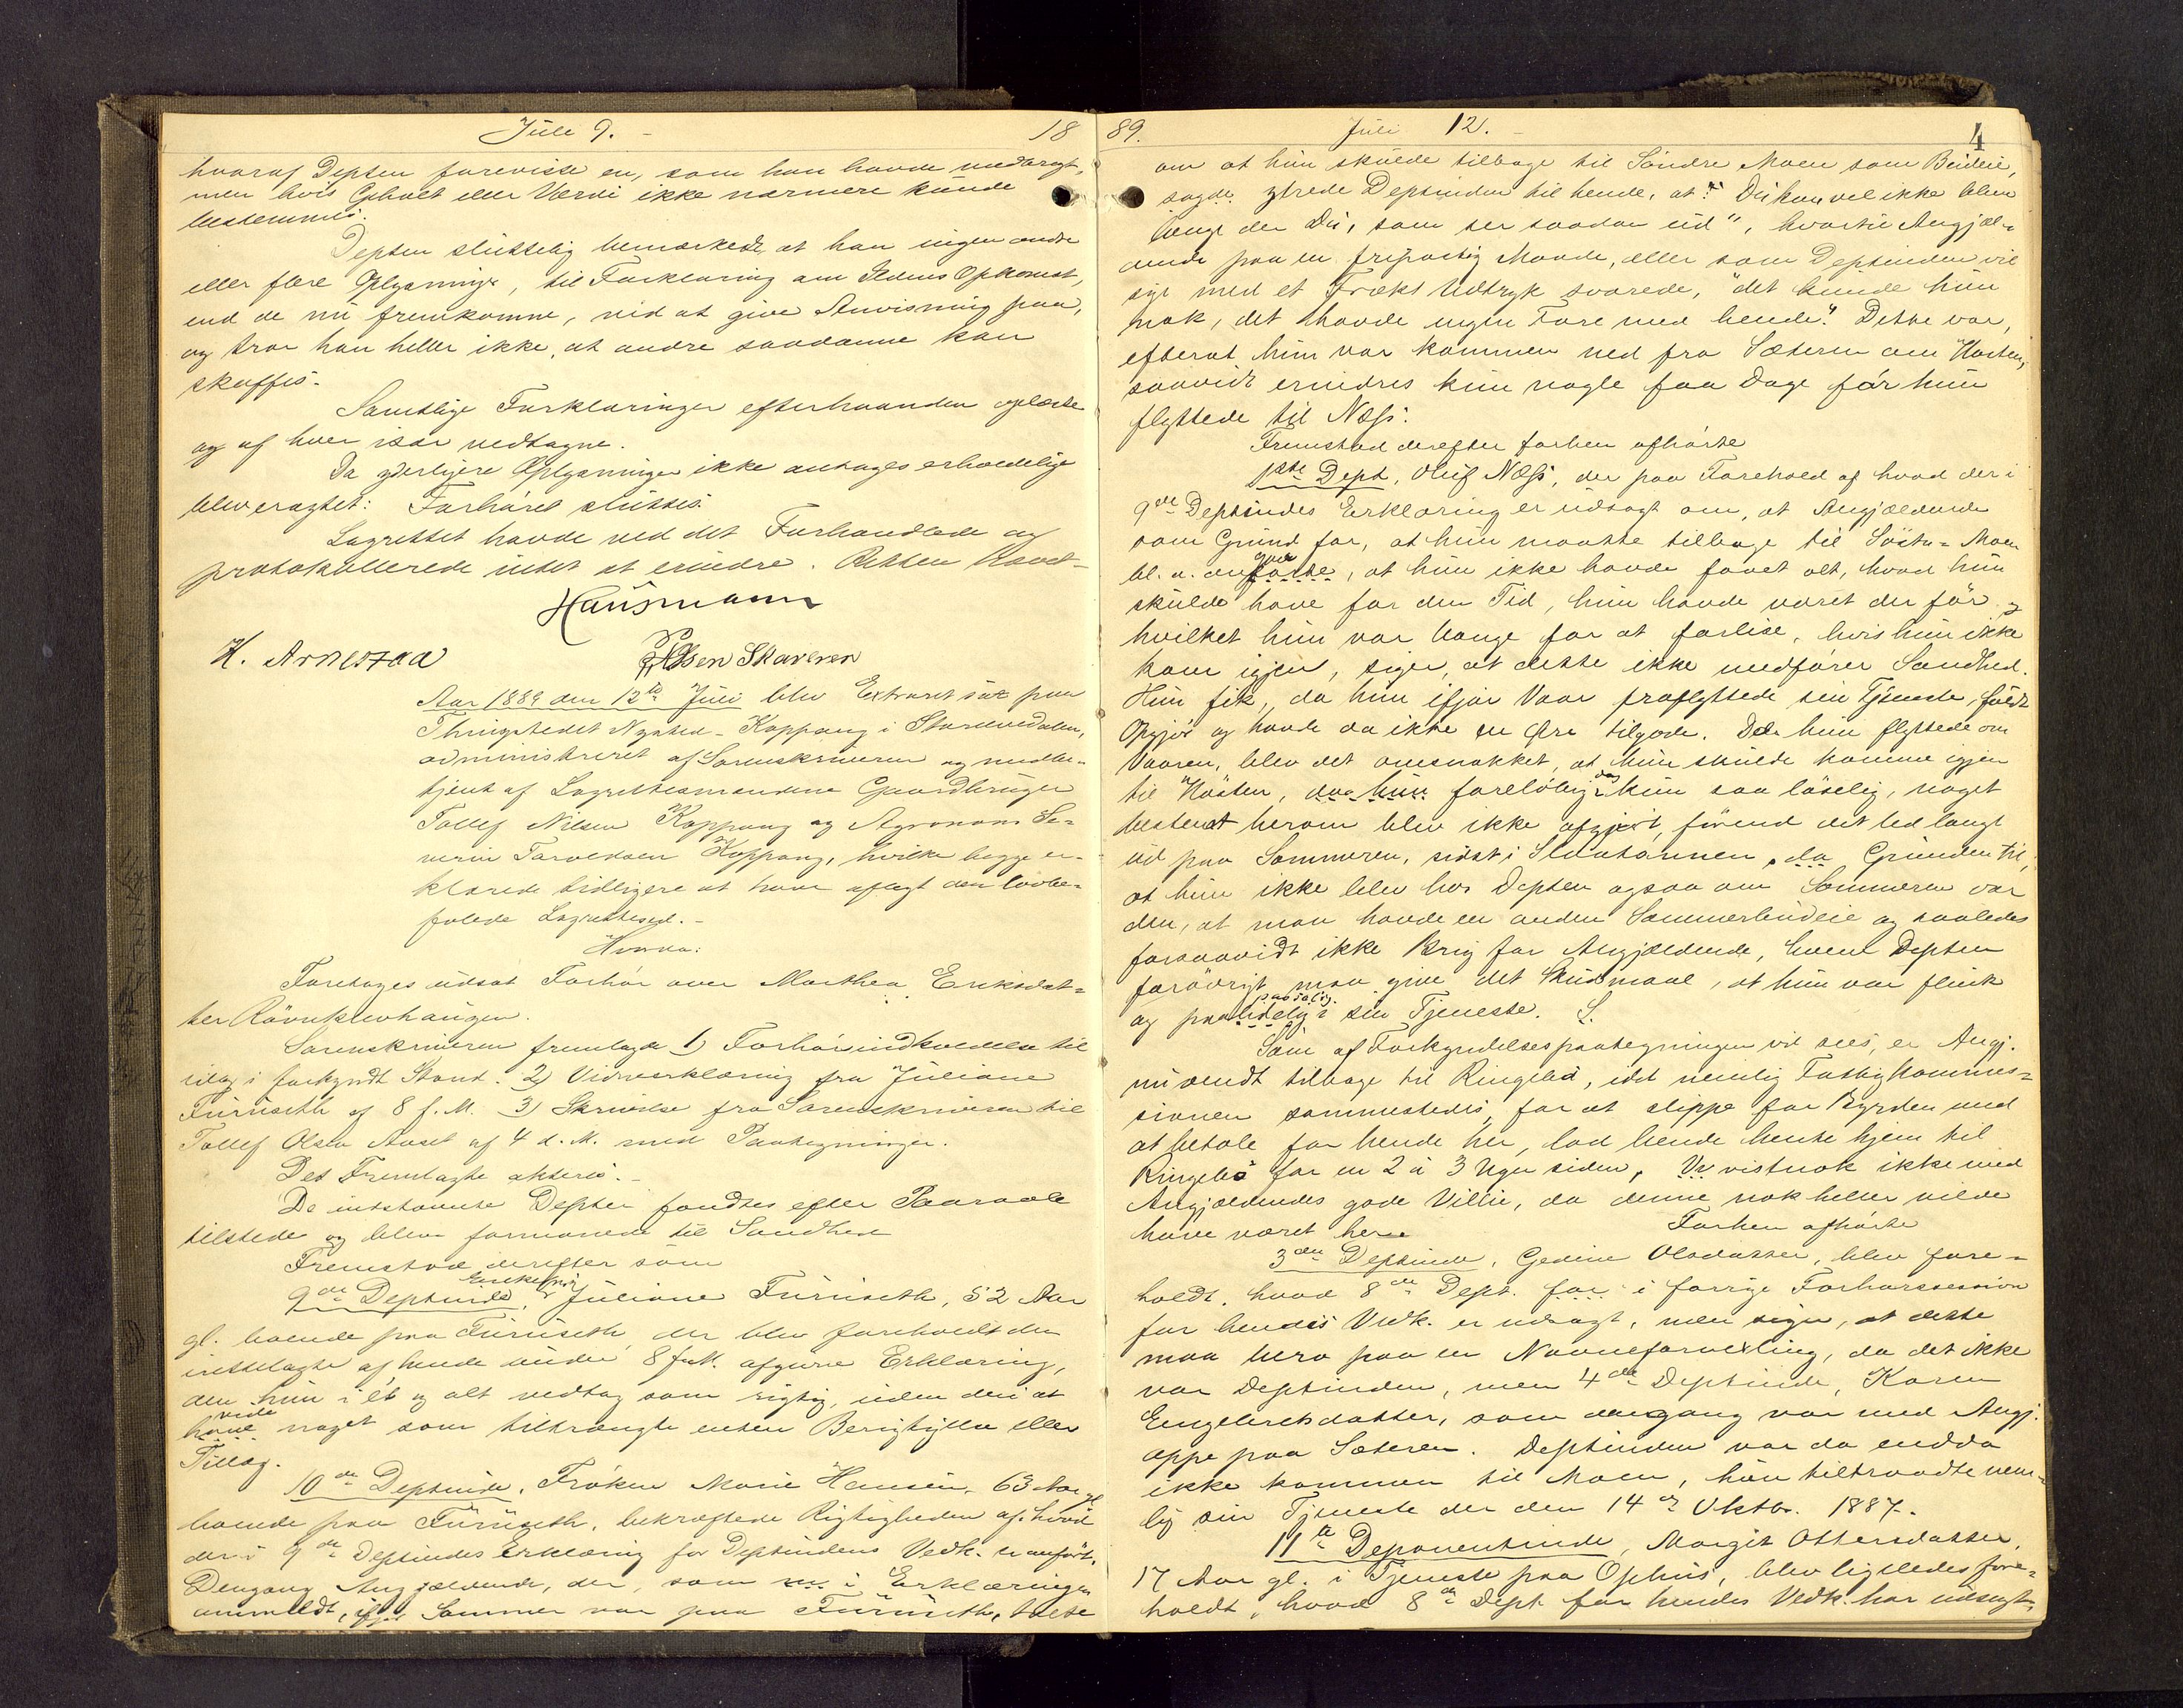 Juli 9. - 18
hvoraf Depten foreviste en, som han havde medbragt,
men hvis Gehalt eller Værdi ikke nærmere kunde
bestemmes.
Depten sluttelig bemærkede, at han ingen andre
eller flere Oplysninger, til Forklaring om Ildens Opkomst,
end de nu fremkomne, vid at give Anvisning paa,
og tror han heller ikke, at andre saadanne kan
skaffes.
Samtlige Forklaringer efterhaanden oplæste
og af hver især vedtagne.
Da yderligere Oplysninger ikke antages erholdelige
blev eragtet: Forhøret sluttes.
Lagrettet havde ved det Forhandlede og
protokollerede intet at erindre. Retten hævet
Hausmann
H. Arnestad Olsen Skaveren
Aar 1889 den 12te Juli blev Extraret sat paa
Thingstedet Nysted - Koppang i Storelvedalen,
administreret af Sorenskriveren og medbe-
tjent af Lagrettesmændene Gaardbruger
Tollef Nilsen Koppang og Agronom Se-
verin Taraldsen Koppang, hvilke begge er-
klærede tidligere at have aflagt den lovbe-
falede Lagrettesed. -
Hvorda:
Foretages udsat Forhør over Marthea Eriksdat-
ter Rövneklevhaugen.
Sorenskriveren fremlagde 1) Forhørsindkaldelse til
idag i forkyndt Stand. 2) Vidneerklæring fra Juliane
Furuseth af 8 f. M. 3) Skrivelse fra Sorenskriveren til
Tollef Olsen Aaset af 4 d. M. med Paategninger.
Det Fremlagte akteres. -
De indstævnte Depter fandtes efter Paaraab
tilstede og blev formanede til Sandhed
Fremstod derefter som
9de Deptinde, Enkefru Juliane Furuseth, 52 Aar
gl. boende paa Furuseth, der blev foreholdt den
inttelagte af hende under 8 f. M. afgivne Erklæring,
den hun i ét og alt vedtog som rigtig, uden deri at
have vide noget som tiltrængte enten Berigtigelse eller
Tillæg.
10de Deptinde, Frøken Marie Hansen, 63 Aar gl.
boende paa Furuseth, bekræftede Rigtigheden af hvad
der i 9de Deptindes Erklæring for Deptindens Vedk. er anført.
Dengang Angjældende, der, som i Erklæringen
anmeldt, ifjor Sommer var paa Furuseth, talte
89. Juli 12. - 4
om at hun skulde tilbage til Söndre Moen som Budeie,
sagde ytrede Deptinden til hende, at: "Du kan vel ikke blive
længe der Du, som ser saadan ud", hvortil Angjæl-
dende paa en fripostig Maade, eller som Deptinden vil
sige med et Frækt Udtryk svarede, "det kunde hun
nok, det havde ingen Fare med hende". Dette var,
efterat hun var kommen ned fra Sæteren om Høsten,
saavidt erindres kun nogle faa Dage før hun
flyttede til Næss.
Fremstod derefter forhen afhørte
1ste Dept, Oluf Næss, der paa Forehold af hvad der i
9de Deptindes Erklæring er udsagt om, at Angjældende
som Grund for, at hun maatte tilbage til Söstu-Moen
bl. a. anførte, at hun ikke havde faaet alt, hvad hun
skulde have for den Tid, hun havde været der før og
hvilket hun var bange for at forlise, hvis hun ikke
kom igjen, siger, at dette ikke medfører Sandhed.
Hun fik, da hun ifjor Vaar fraflyttede sin Tjeneste, fuldt
Opgjør og havde da ikke en Øre tilgode. Da hun flyttede om
Vaaren, blev det omsnakket, at hun skulde komme igjen
til Høsten, dog hun foreløbig dog kun saa løselig, noget
bestemt herom blev ikke afgjort, førend det led langt
ud paa Sommeren, sidst i Slaataannen, da Grunden til,
at hun ikke blev hos Depten ogsaa om Sommeren var
den, at man havde en anden Sommerbudeie og saaledes
forsaavidt ikke Brug for Angjældende, hvem Depten
forøvrigt maa give det Skudsmaal, at hun var flink
og paalidelig paalidelig i sin Tjeneste. S.
Som af Forkyndelsespaategningen vil sees, er Angj.
nu vendt tilbage til Ringebu, idet nemlig Fattigkommis-
sionen sammestedes, for at slippe for Byrden med
at betale for hende her, lod hende hente hjem til
Ringebu for en 2 à 3 Uger siden, vistnok ikke med
Angjældendes gode Villie, da denne nok heller vilde
have været her. Forhen afhørte
3die Deptinde, Gedine Olsdatter, blev fore-
holdt, hvad 8de Dept. for i forrige Forhørssession
for hendes Vedk. er udsagt, men siger, at dette
maa bero paa en Navneforvexling, da det ikke
var Deptinden, men 4de Deptinde, Karen
Engebretsdatter, som dengang var med Angj.
oppe paa Sæteren. Deptinden var da endda
ikke kommen til Moen, hun tiltraadte nem-
lig sin Tjeneste der den 14de Oktbr. 1887.
11te Deponentinde, Margit Ottersdatter,
17 Aar gl. i Tjeneste paa Ophus, blev ligeledes fore-
holdt, hvad 8de Dept. for hendes Vedk. har udsagt,